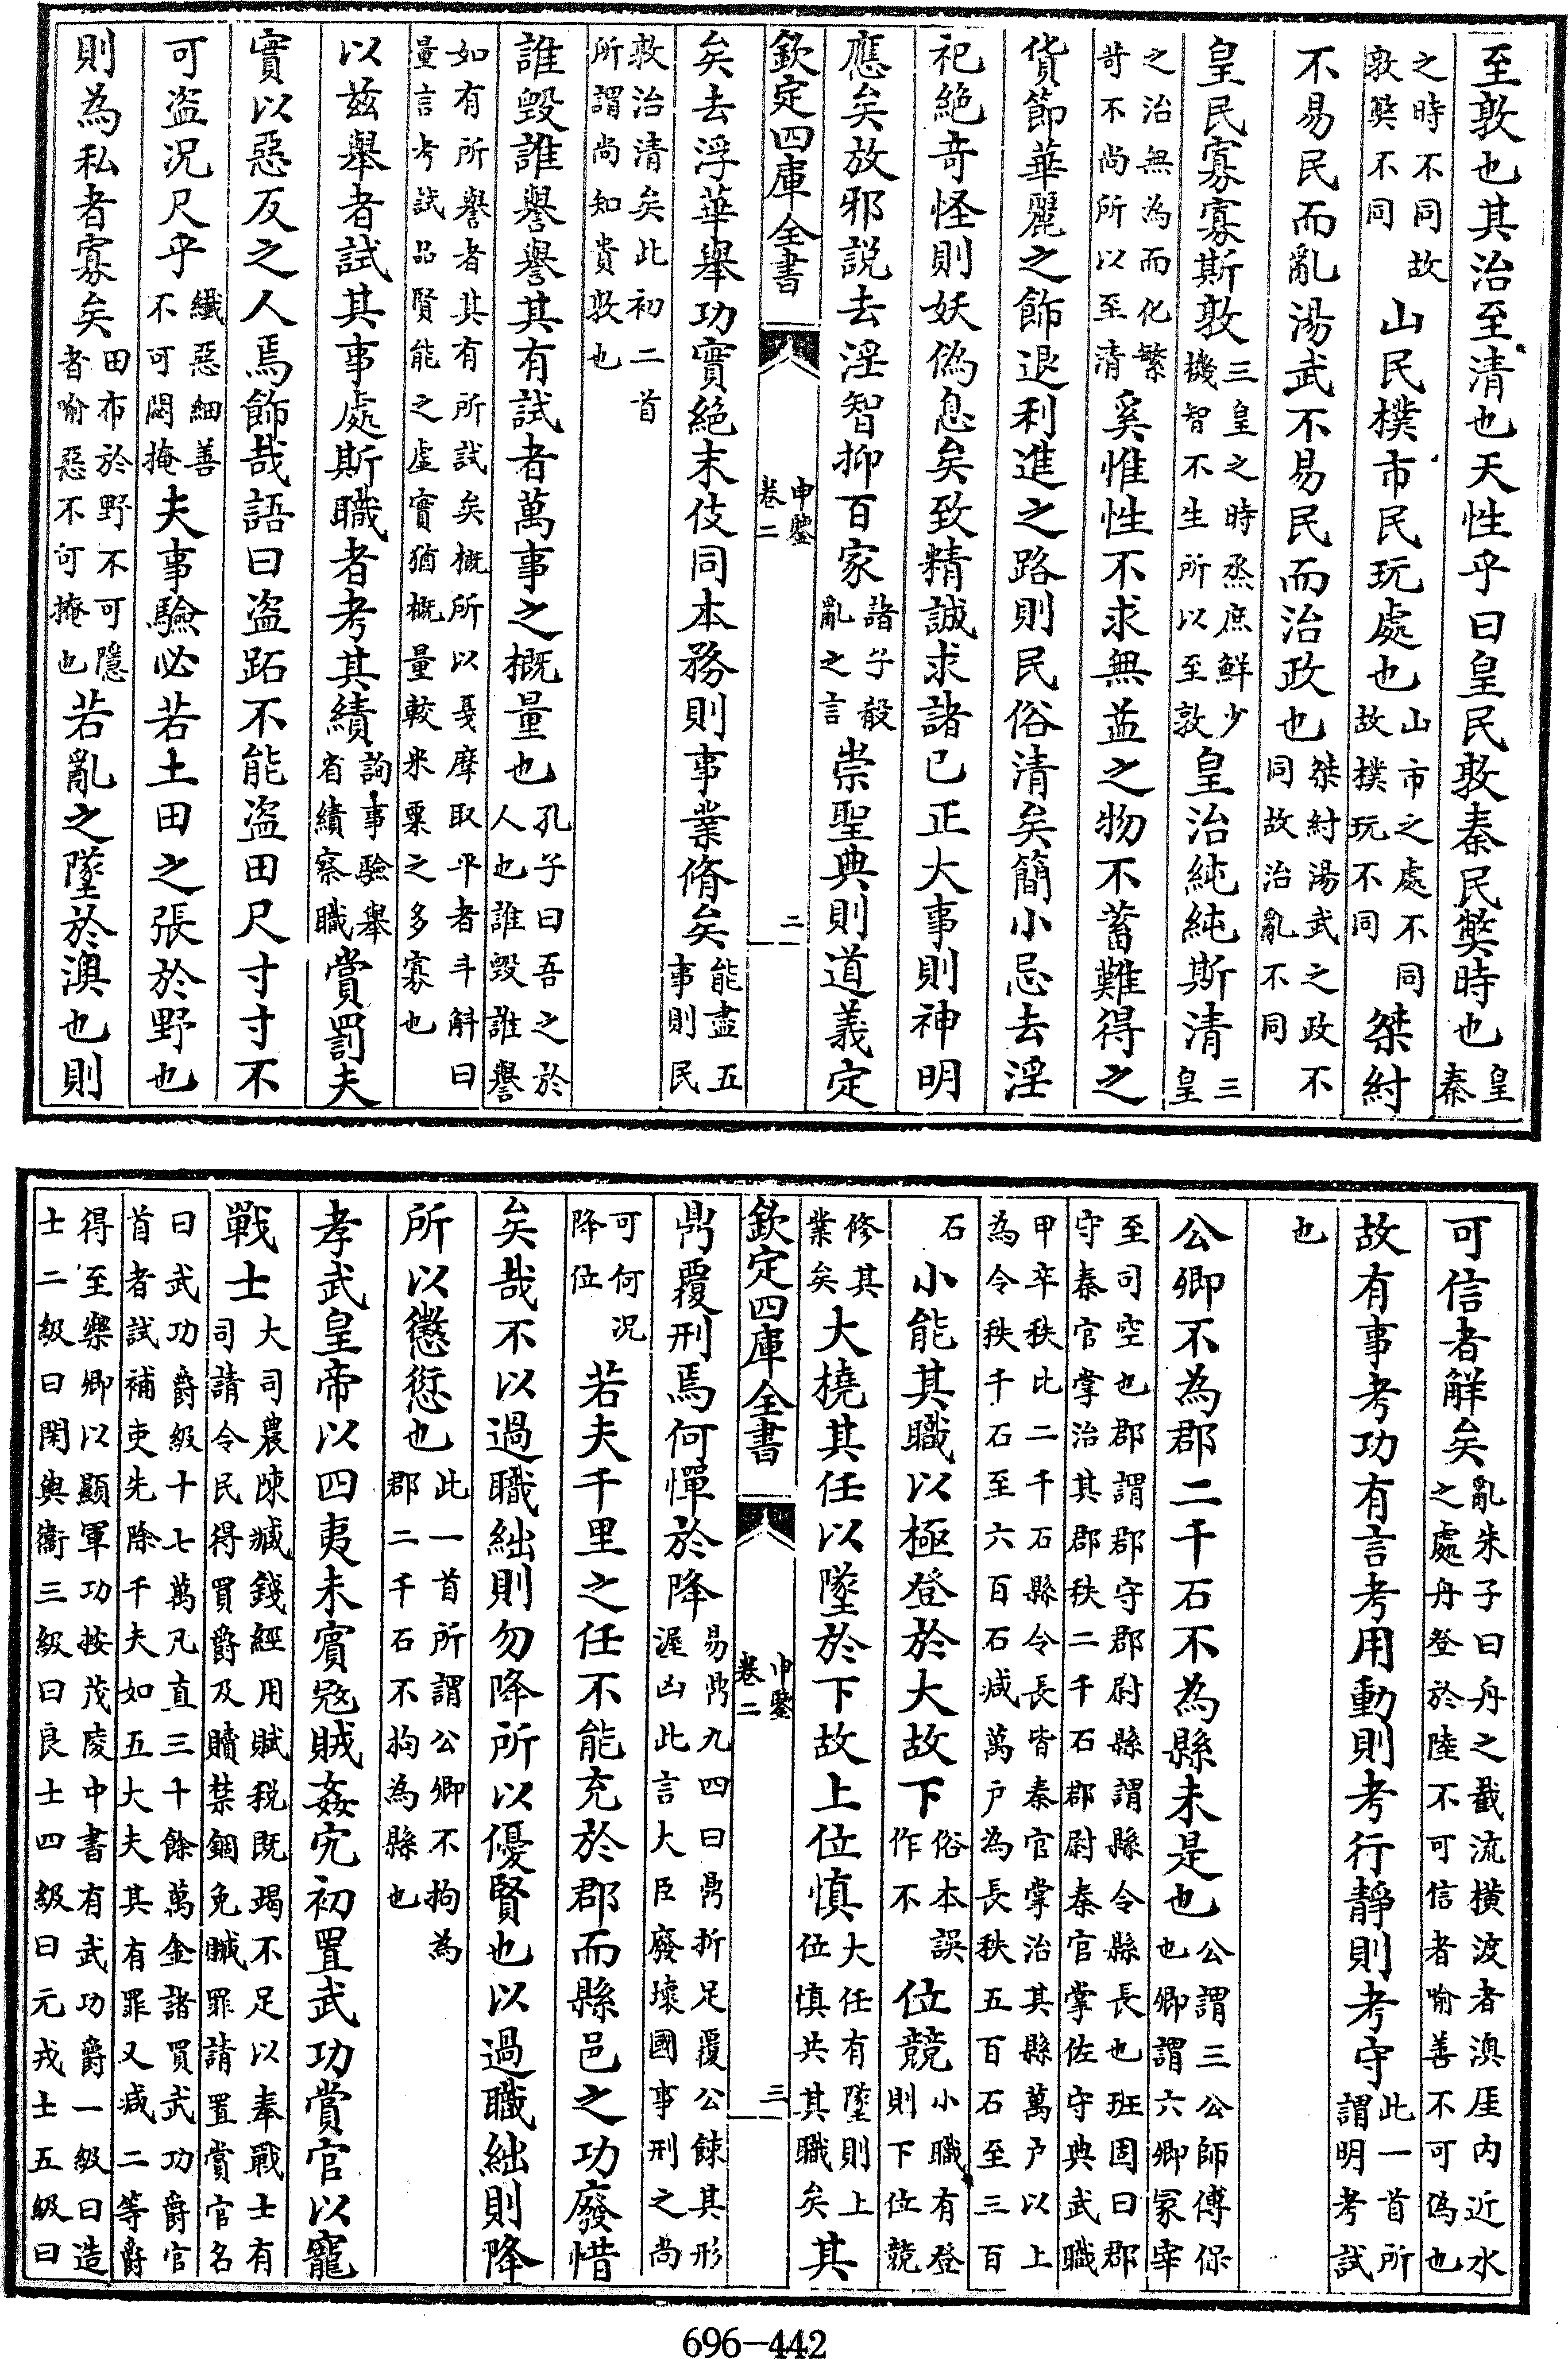 至敦也其治至清也天性乎曰皇民敦秦民獘時也皇秦
之時不同故敦獘不同山民樸市民玩處也山市之處不同故樸玩不同桀紂
不易民而亂湯武不易民而治政也桀紂湯武之政不同故治亂不同
皇民寡寡斯敦三皇之時烝庶鮮少機智不生所以至敦皇治純純斯清三皇
之治無為而化繁苛不尚所以至清奚惟性不求無益之物不蓄難得之
貨節華麗之飾退利進之路則民俗清矣簡小忌去淫
祀絶奇怪則妖偽息矣致精誠求諸已正大事則神明
應矣放邪説去淫智抑百家諸子殽亂之言崇聖典則道義定
欽定四庫全書 申鑒卷二 二
矣去浮華舉功實絶末伎同本務則事業脩矣能盡五事則民
敦治清矣此初二首所謂尚知貴敦也
誰毀誰譽譽其有試者萬事之概量也孔子曰吾之於人也誰毀誰譽
如有所譽者其有所試矣概所以戛摩取平者斗斛曰量言考試品賢能之虛實猶概量較米粟之多寡也
以兹舉者試其事處斯職者考其績詢事驗舉省績察職賞罰夫
實以惡反之人焉飾哉語曰盜跖不能盜田尺寸寸不
可盜況尺乎纖惡細善不可閟掩夫事驗必若土田之張於野也
則為私者寡矣田布於野不可隱者喻惡不可掩也若亂之墜於澳也則
可信者解矣亂朱子曰舟之截流橫渡者澳厓内近水之處舟登於陸不可信者喻善不可偽也
故有事考功有言考用動則考行靜則考守此一首所謂明考試
也
公卿不為郡二千石不為縣未是也公謂三公師傅保也卿謂六卿冢宰
至司空也郡謂郡守郡尉縣謂縣令縣長也班固曰郡守秦官掌治其郡秩二千石郡尉秦官掌佐守典武職
甲卒秩比二千石縣令長皆秦官掌治其縣萬户以上為令秩千石至六百石減萬户為長秩五百石至三百
石小能其職以極登於大故下俗本誤作不位競小職有登則下位競
修其業矣大橈其任以墜於下故上位慎大任有墜則上位慎共其職矣其
欽定四庫全書 申鑒卷二 三
鼎覆刑焉何憚於降易鼎九四曰鼎折足覆公餗其形渥凶此言大臣廢壞國事刑之尚
可何况降位若夫千里之任不能充於郡而縣邑之功廢惜
矣哉不以過職絀則勿降所以優賢也以過職絀則降
所以懲愆也此一首所謂公卿不拘為郡二千石不拘為縣也
孝武皇帝以四夷未賓寇賊姦宄初置武功賞官以寵
戰士大司農陳臧錢經用賦税既竭不足以奉戰士有司請令民得買爵及贖禁錮免臧罪請置賞官名
曰武功爵級十七萬凡直三十餘萬金諸買武功爵官首者試補吏先除千夫如五大夫其有罪又減二等爵
得至樂卿以顯軍功按茂陵中書有武功爵一級曰造士二級曰閑輿衛三級曰良士四級曰元戎士五級曰
696-442